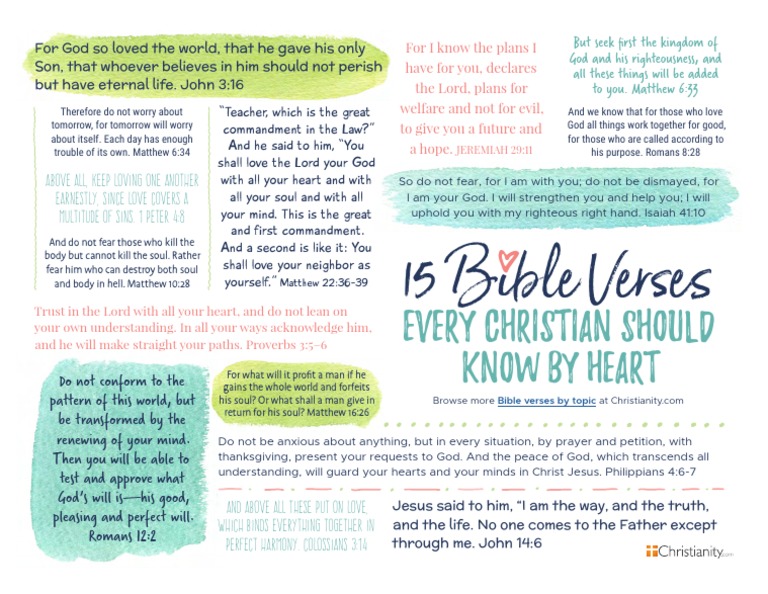 For God so loved the world, that he gave his only
Son, that whoever believes in him should not perish
but have eternal life. John 3:16
Therefore do not worry about
tomorrow, for tomorrow will worry
about itself. Each day has enough
trouble of its own. Matthew 6:34
ABOVE ALL, KEEP LOVING ONE ANOTHER
EARNESTLY, SINCE LOVE COVERS A
MULTITUDE OF SINS. 1 PETER 4:8
And do not fear those who kill the
body but cannot kill the soul. Rather
fear him who can destroy both soul
and body in hell. Matthew 10:28
"Teacher, which is the great
commandment in the Law?"
And he said to him, "You
shall love the Lord your God
with all your heart and with
all your soul and with all
your mind. This is the great
and first commandment.
And a second is like it: You
shall love your neighbor as
yourself." Matthew 22:36-39
For I know the plans I
have for you, declares
the Lord, plans for
welfare and not for evil,
to give you a future and
a hope. JEREMIAH 29:11
But seek first the kingdom of
God and his righteousness, and
all these things will be added
to you. Matthew 6:33
And we know that for those who love
God all things work together for good,
for those who are called according to
his purpose. Romans 8:28
So do not fear, for I am with you; do not be dismayed, for
I am your God. I will strengthen you and help you; I will
uphold you with my righteous right hand. Isaiah 41:10
15 Bible Verses
EVERY CHRISTIAN SHOULD
KNOW BY HEART
Browse more Bible verses by topic at Christianity.com
Trust in the Lord with all your heart, and do not lean on
your own understanding. In all your ways acknowledge him,
and he will make straight your paths. Proverbs 3:5-6
Do not conform to the
pattern of this world, but
be transformed by the
renewing of your mind.
Then you will be able to
test and approve what
God's will is—his good,
pleasing and perfect will.
Romans 12:2
For what will it profit a man if he
gains the whole world and forfeits
his soul? Or what shall a man give in
return for his soul? Matthew 16:26
Do not be anxious about anything, but in every situation, by prayer and petition, with
thanksgiving, present your requests to God. And the peace of God, which transcends all
understanding, will guard your hearts and your minds in Christ Jesus. Philippians 4:6-7
AND ABOVE ALL THESE PUT ON LOVE,
WHICH BINDS EVERYTHING TOGETHER IN
PERFECT HARMONY. COLOSSIANS 3:14
Jesus said to him, "I am the way, and the truth,
and the life. No one comes to the Father except
through me. John 14:6
Christianity.com